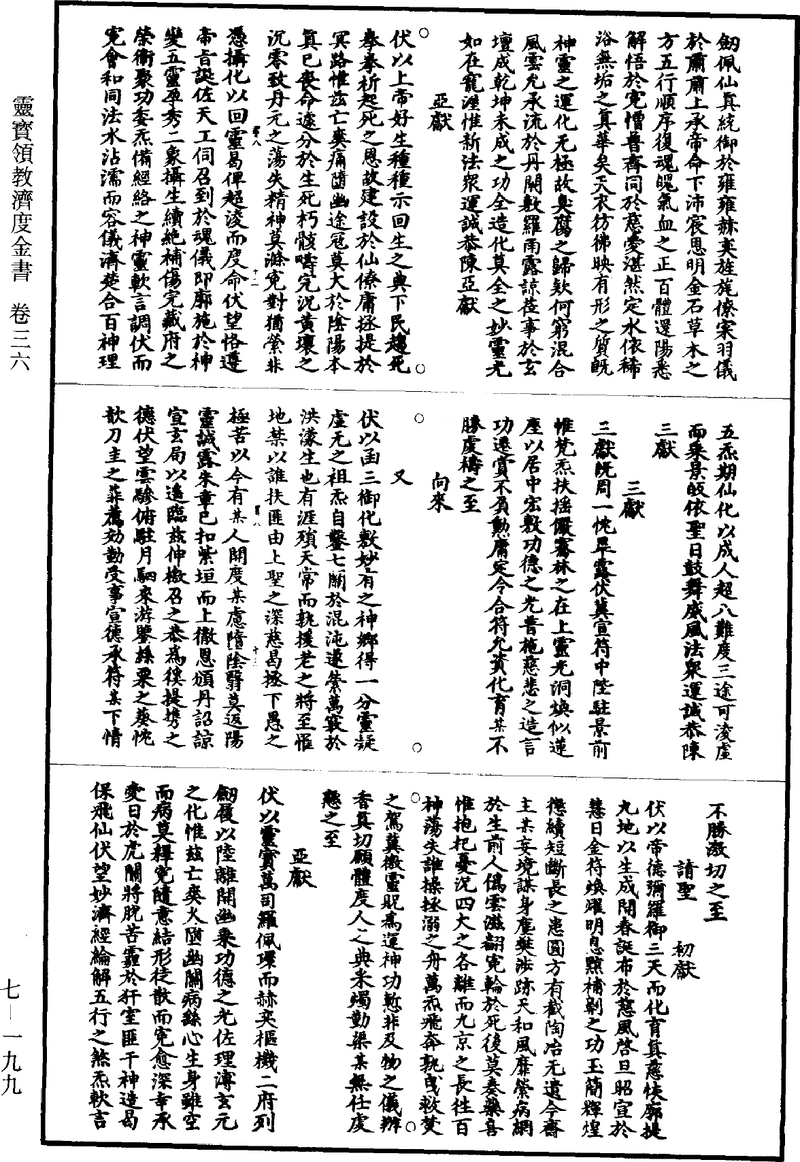 靈寶領教濟度金書 卷三六
七—一九九
劒佩仙真統御於雍雍赫奕旌旄僚寀羽儀
於肅肅上承帝命下沛宸恩明金石草木之
方五行順序復魂魄氣血之正百體還陽悉
解悟於冤憎普齊同於慈愛湛然定水依稀
浴無垢之真華矣天衣彷彿映有形之質既
神靈之運化无極故臭腐之歸欸何窮混合
風雲允承流於丹闕敷羅雨露諒莅事於玄
壇成乾坤未成之功全造化莫全之妙靈光
如在寵渥惟新法衆運誠恭陳亞獻
亞獻
伏以上帝好生種種示回生之典下民趨死
拳拳祈起死之恩故建設於仙僚庸拯提於
冥路惟茲亡奠痛墮幽途冤莫大於陰陽本
真已喪命遽分於生死朽骸疇完況黃壤之
沉零致丹元之蕩失精神莫滌冤對猶縈非
憑攝化以回靈曷俾超淩而度命伏望恪遵
帝旨誕佐天工伺召到於魂儀即廓施於神
變五靈孕秀二象攝生續絶補傷完藏府之
榮衛聚功委炁備經絡之神靈軟言調伏而
冤會和同法水沾濡而容儀濟楚合百神理
五炁期仙化以成人超八難度三途可淩虛
而乘景皈依聖日鼓舞威風法衆運誠恭陳
三獻
三獻
三獻既周一忱畢露伏冀宣符中陛駐景前
惟梵炁扶摇儼騫林之在上靈光洞煥似蓮
座以居中宏敷功德之光普施慈悲之造言
功遷賞不負勲庸定令合符允資化育某不
勝虔禱之至
向來
又
伏以函三御化敷妙有之神鄉得一分靈凝
虛无之祖炁自鑿七關於混沌遂縈萬竅於
洪濛生也有涯殞天常而孰援老之將至罹
地禁以誰扶匪由上聖之深慈曷拯下愚之
極苦以今有某人開度某慮隋陰翳莫返陽
靈誠露朱章已扣紫垣而上徹恩頒丹詔諒
宣玄局以遙臨茲伸檄召之恭爲僕提携之
德伏望雲驂俯駐月駟來游鑒絲粟之葵忱
歆刀圭之菲薦効勤受事宣德承符某下情
不勝激切之至
請聖 初獻
伏以帝德彌羅御三天而化育真慈恢廓提
九地以生成開春誕布於慈風啓旦昭宣於
慧日金符煥耀明息黥補劓之功玉簡輝煌
德續短斷長之患圓方有截陶冶无遺今齋
主某妄境謀身塵樊涉跡天和風靡縈病網
於生前人僞雲滋翻冤輪於死後莫奏藥喜
惟抱圮憂況四大之各離而九京之長往百
神蕩失誰操拯溺之舟萬炁飛奔孰曳救焚
之駕冀徹靈貺爲運神功慙非及物之儀辦
香冥切願體度人之典采蠲勤梁某無任虔
懇之至
亞獻
伏以靈寳萬司羅佩環而赫奕樞機二府列
劒履以陸離開幽乗功德之光佐理溥玄元
之化惟茲亡奠久墮幽關病絲心生身雖空
而病莫釋冤隨意結形徒散而冤愈深幸承
愛日於虎關將脫苦霾於犴室匪干神造曷
保飛仙伏望妙濟經綸解五行之煞炁軟言